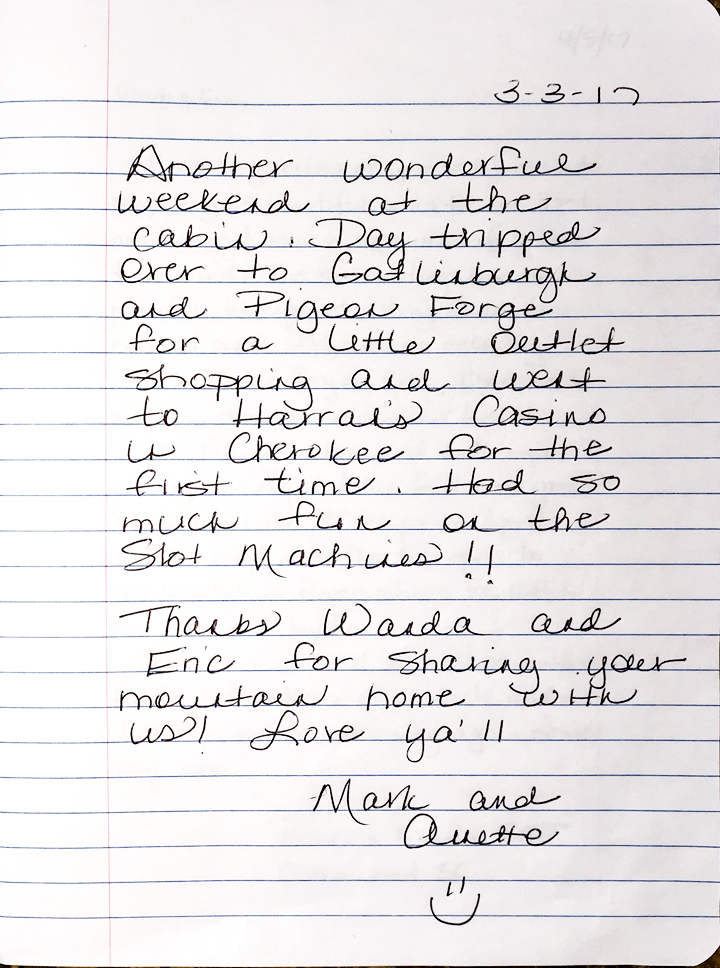 3-3-17
Another wonderful
weekend at the
cabin. Day tripped
over to Gatlinburgh
and Pigeon Forge
for a little outlet
shopping and went
to Harrah's Casino
in Cherokee for the
first time. Had so
much fun on the
Slot Machines!!
Thanks Wanda and
Eric for sharing your
mountain home with
us! Love ya'll
Mark and
Anette